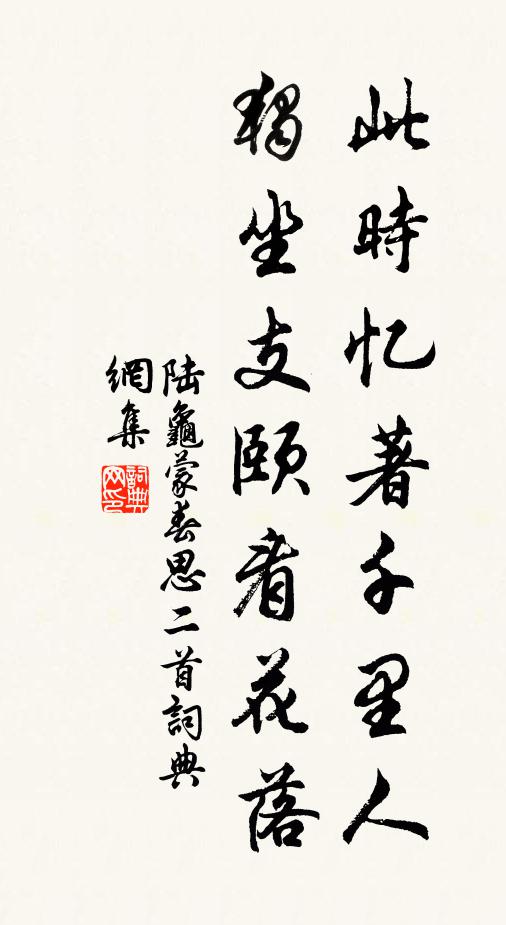 此時忆著千里人
獨坐支頤看花落
陆龜蒙春思二首詞典
網集
詞典
网印